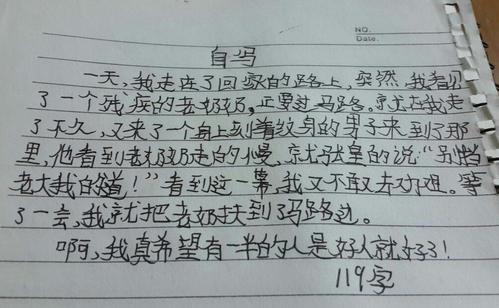 NO.
Date.
自写
一天,我走在了回家的路上,突然,我看见
了一个残疾的老奶奶,正要过马路。就在我走
了不久,又来了一个身上刻着纹身的男子来到了那
里,他看到老奶奶走的慢,就张皇的说“别挡
老大我的道!”看到这一幕,我又不敢去劝阻。等
了一会,我就把老奶扶到了马路边。
啊,我真希望有一半的人是好人就好了!
119字